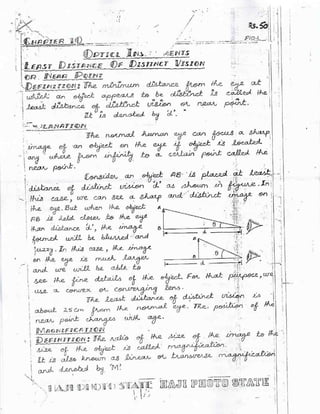 Rs.50
CHAPTER 10
OPTICAL INS MENTS
LEAST DISTANCE OF DISTINCT VISION
OR NEAR POINT
DEFINITION: The minimum distance from the eye at
which an object appears to be distinct is called the
least distance of distinct vision or near point.
It is denoted by 'd'.
The normal human eye can focus a sharp
image of an object on the eye if object is located
any where from infinity to a certain point called the
near point.
Consider an object AB is placed at least
distance of distinct vision 'd' as shown in figure. In
this case, we can see a sharp and distinct image on
the eye. But when the object
AB is held closer to the eye
than distance 'd', the image
formed will be blurred and
fuzzy. In this case, the image
on the eye is much larger
and we will be able to
see the fine details of the object. For that purpose, we
use a convex or converging lens.
The least distance of distinct vision is
about 25cm from the normal eye. The position of the
near point changes with age.
MAGNIFICATION
DEFINITION: The ratio of the size of the image to the
size of the object is called magnification.
It is also known as linear or transverse magnification
and denoted by 'M'.
HAJI PHOTO STATE HAJI PHOTO STATE